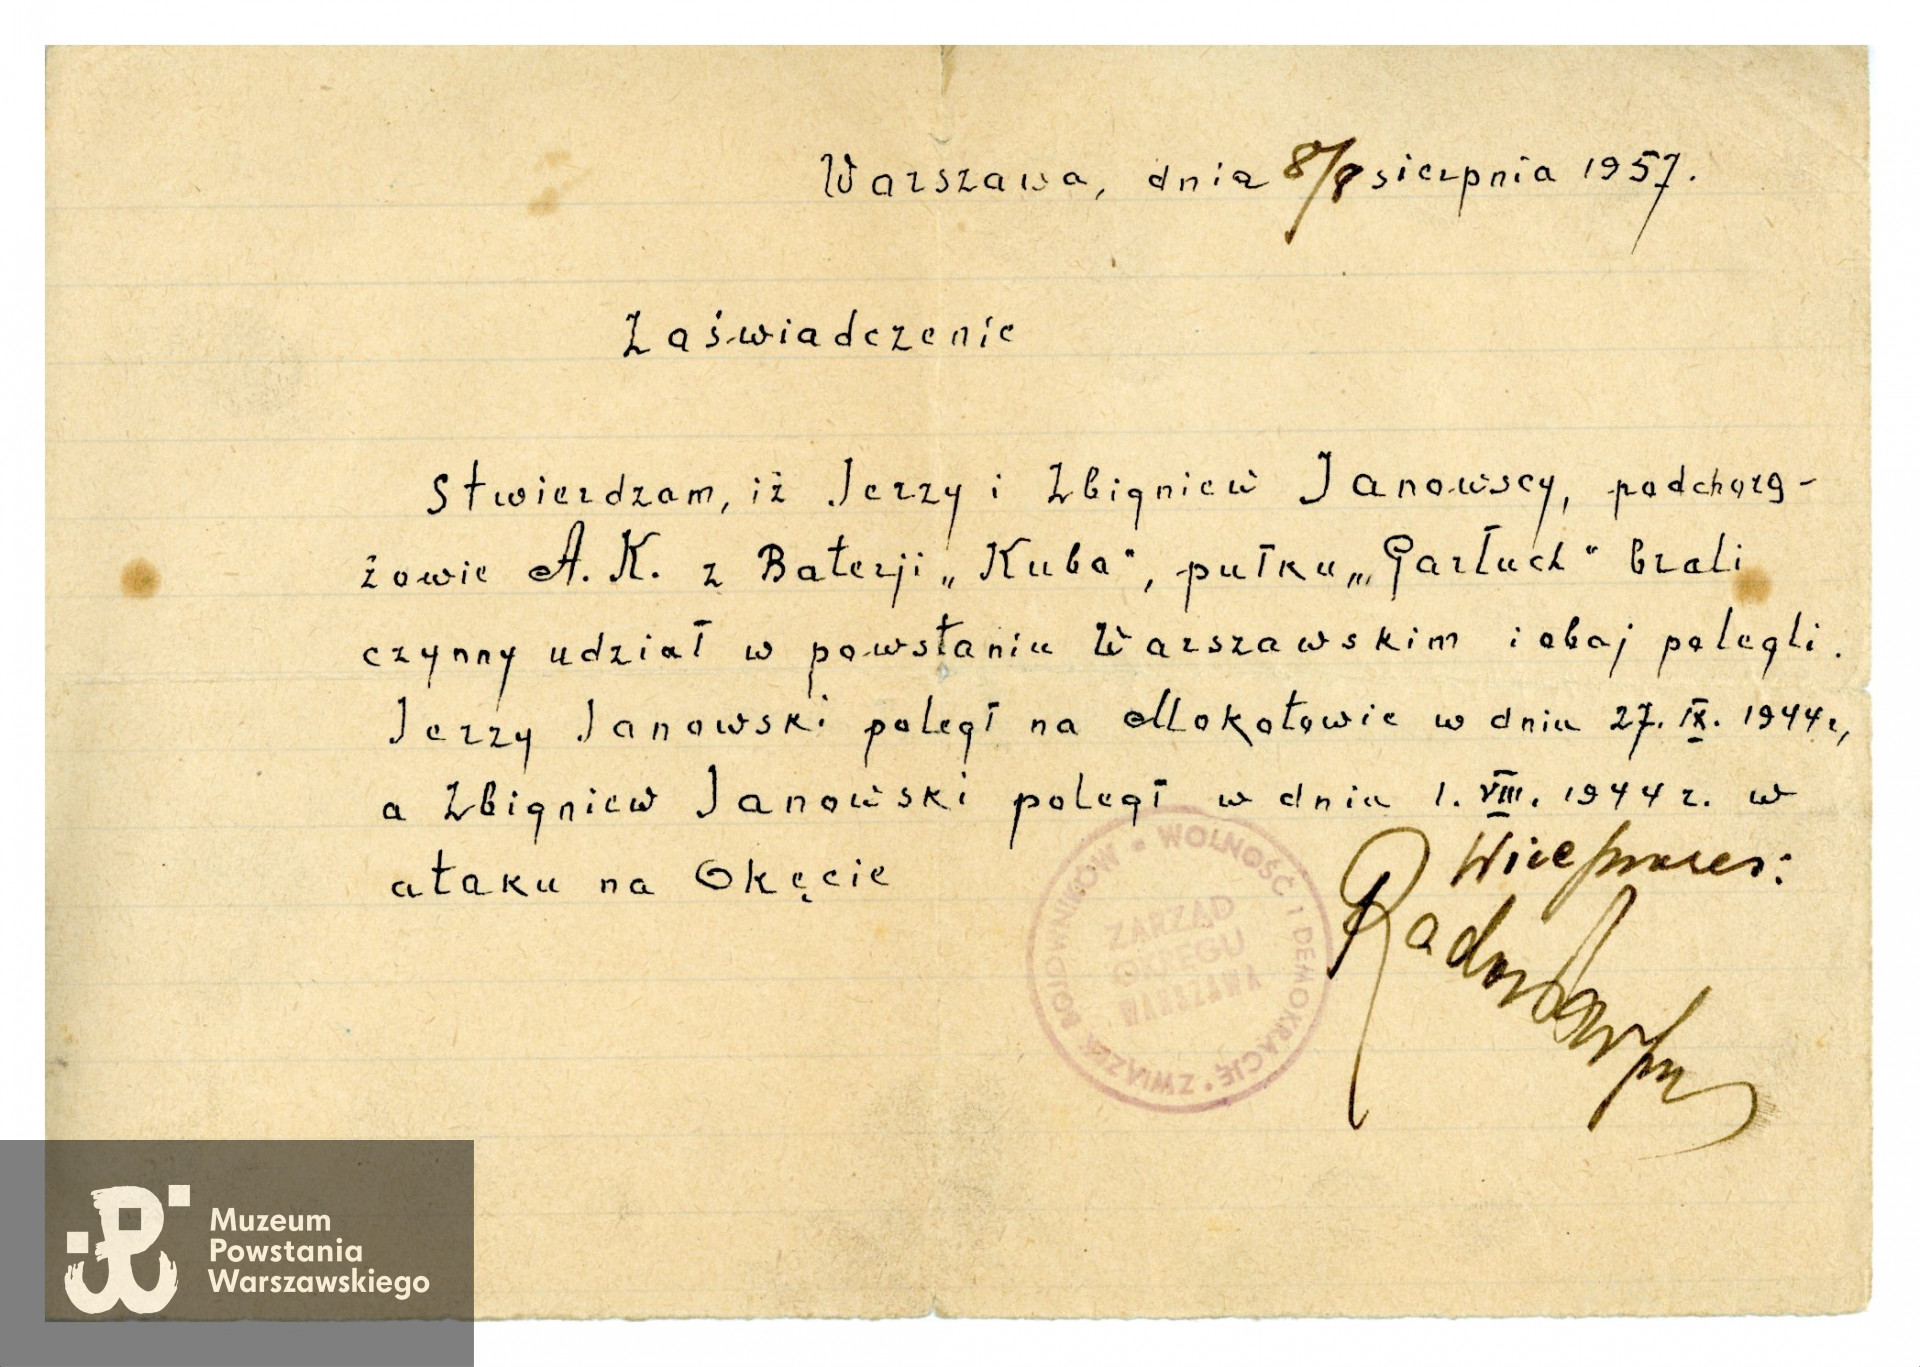 Warszawa, dnia 8/8 sierpnia 1957.
Zaświadczenie
Stwierdzam, iż Jerzy i Zbigniew Janowscy, podchorą-
żowie A. K. z Baterji „Kuba”, pułku „Garłuch” brali
czynny udział w powstaniu Warszawskim i obaj polegli.
Jerzy Janowski poległ na Mokotowie w dniu 27. IX. 1944 r,
a Zbigniew Janowski poległ w dniu 1. VIII. 1944 r. w
ataku na Okęcie
Wiceprezes:
ZWIĄZEK BOJOWNIKÓW • WOLNOŚĆ I DEMOKRACJĘ •
ZARZĄD
OKRĘGU
WARSZAWA
Muzeum
Powstania
Warszawskiego